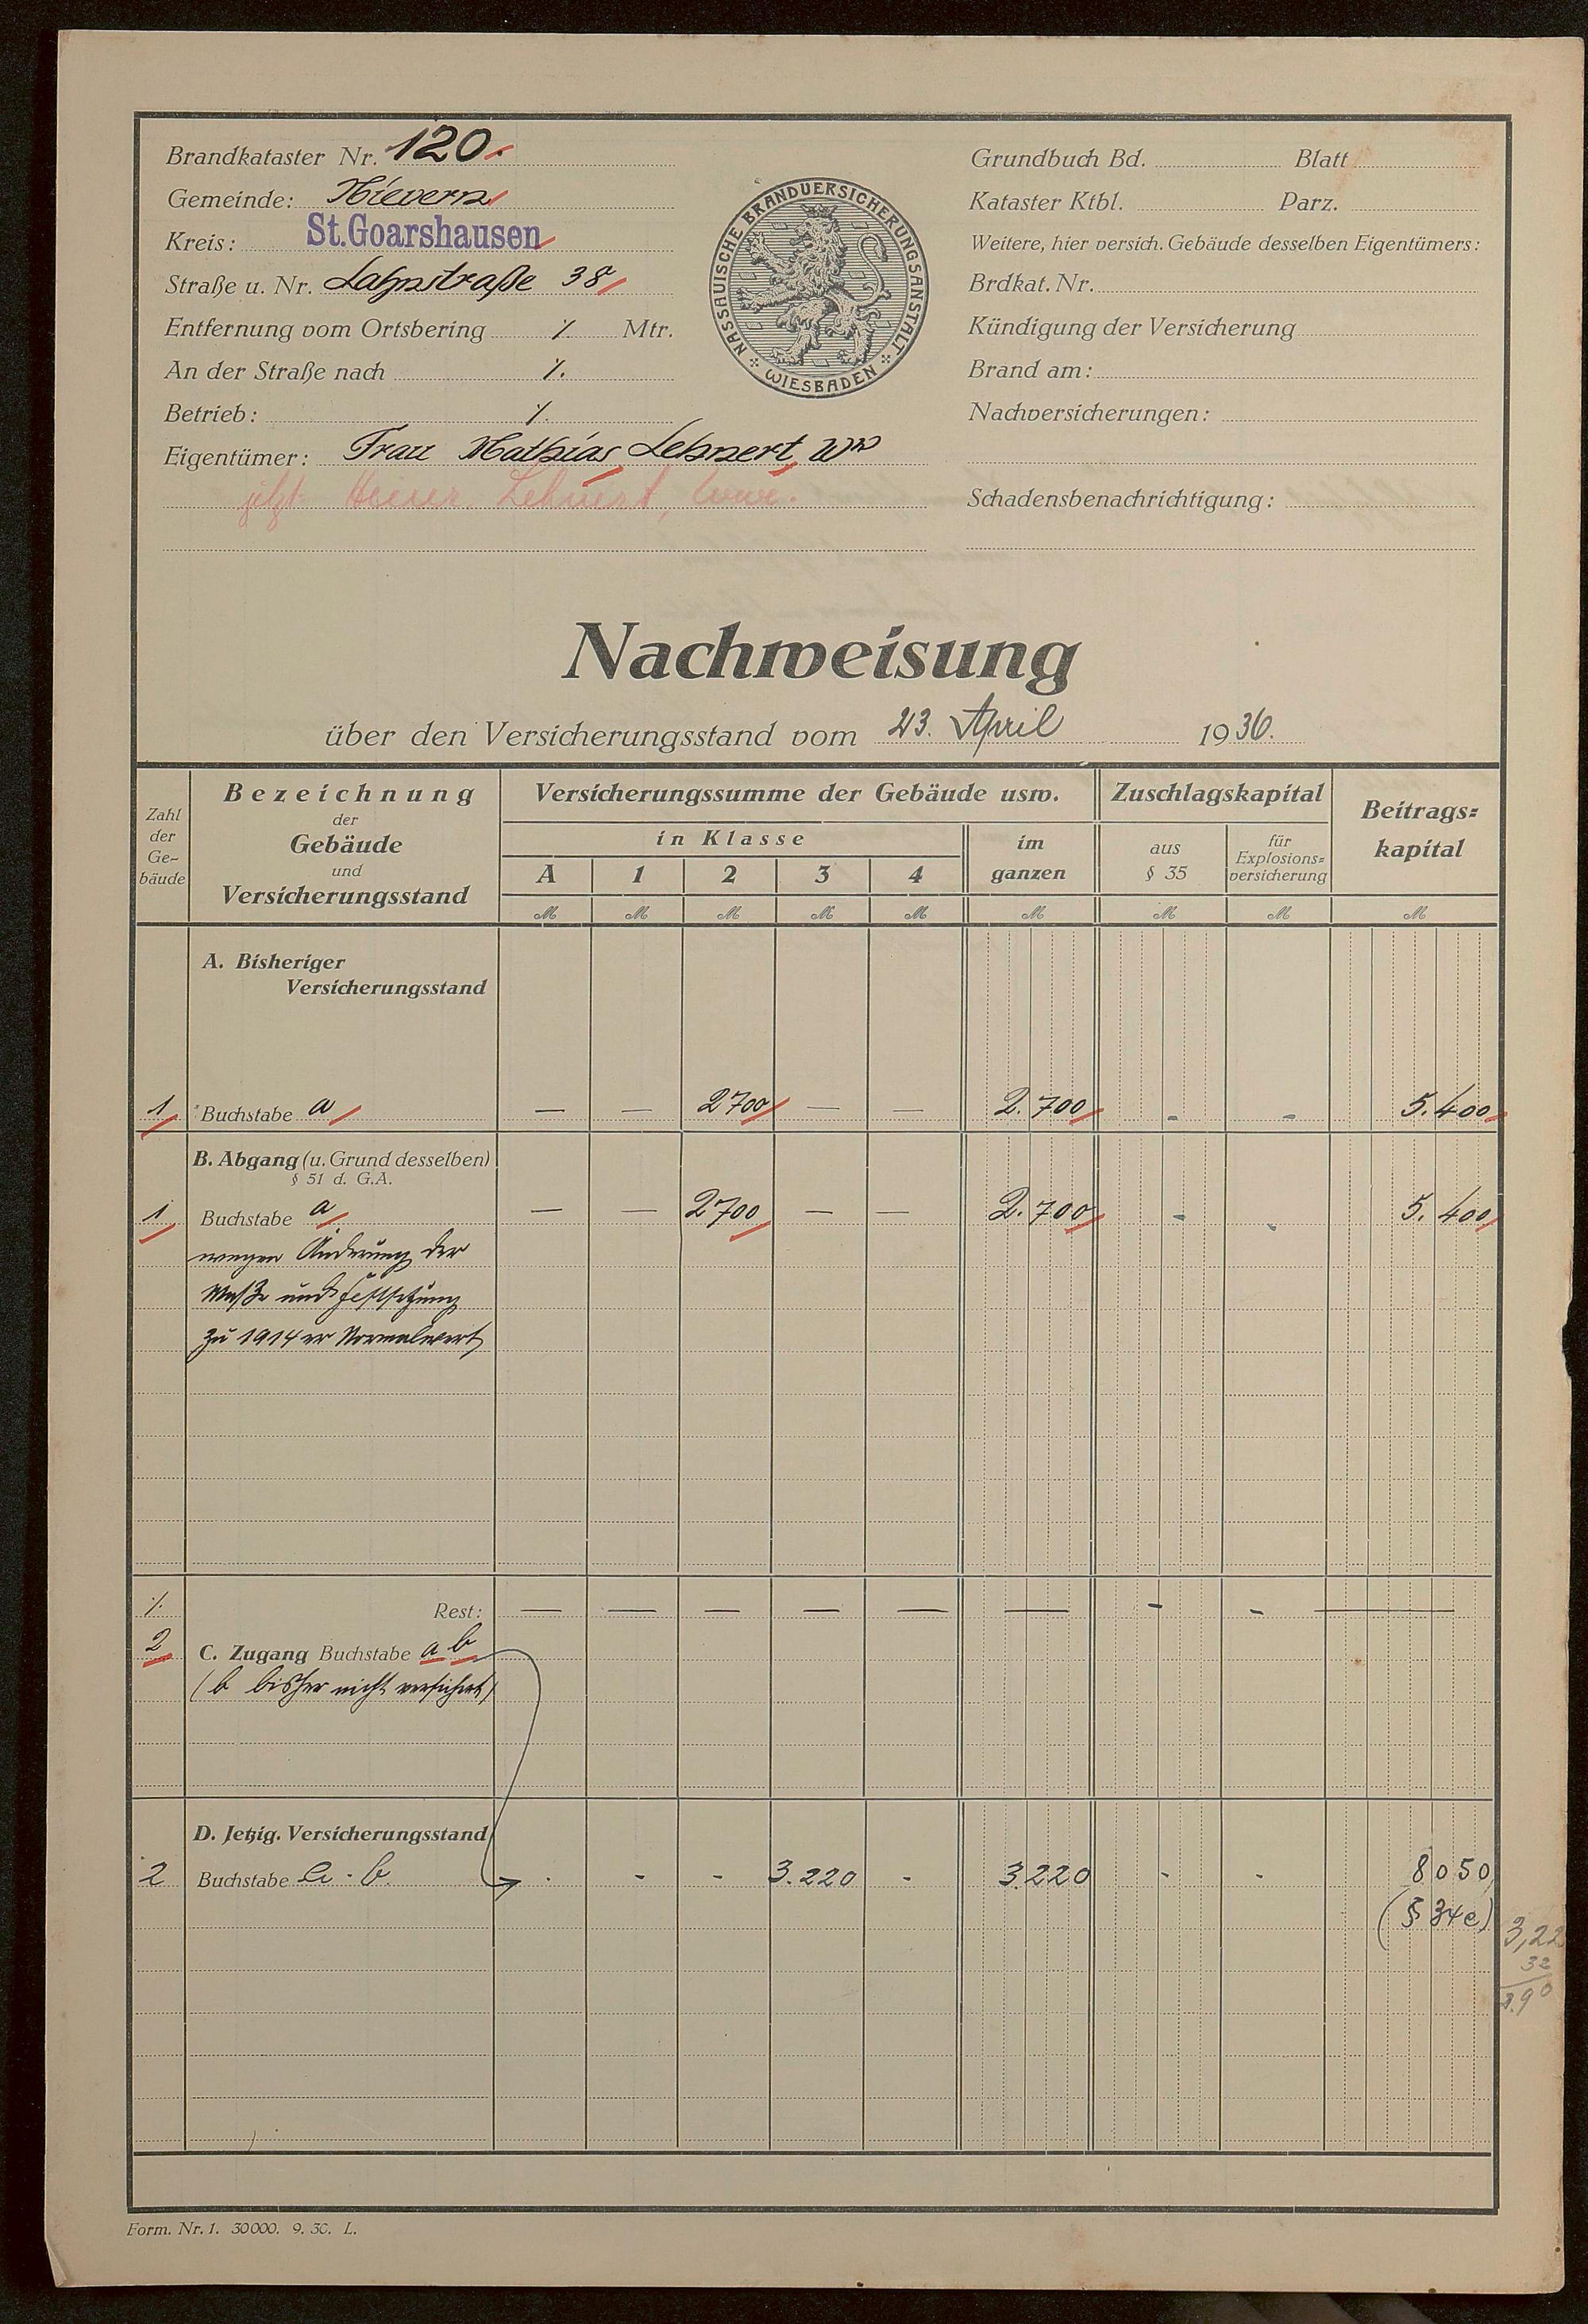 Brandkataster Nr. 120.
Gemeinde: Nievern
Kreis: St.Goarshausen
Straße u. Nr. Lahnstraße 38
Entfernung vom Ortsbering ./. Mtr.
An der Straße nach ./.
Betrieb: ./.
Eigentümer: Frau Mathias Lehnert, Ww
jetzt Lehnert, Wwe.
NASSAUISCHE BRANDVERSICHERUNGSANSTALT
WIESBADEN
Grundbuch Bd. Blatt
Kataster Ktbl. Parz.
Weitere, hier versich. Gebäude desselben Eigentümers:
Brdkat. Nr.
Kündigung der Versicherung
Brand am:
Nachversicherungen:
Schadensbenachrichtigung:
Nachweisung
über den Versicherungsstand vom 23. April 1936.
Zahl der Ge- bäude
Bezeichnung der Gebäude und Versicherungsstand
Versicherungssumme der Gebäude usw.
in Klasse
A 1 2 3 4
im ganzen
Zuschlagskapital
aus § 35
für Explosions- versicherung
Beitrags- kapital
M M M M M M M M M
A. Bisheriger
Versicherungsstand
1 Buchstabe a — — 2700 — — 2.700 - - 5.400
B. Abgang (u. Grund desselben)
§ 51 d. G.A.
1 Buchstabe a — — 2700 — — 2.700 - - 5.400
wegen Änderung der
Maße und Festsetzung
zu 1914er Normalwert
./. Rest: — — — — — — - - —
2 C. Zugang Buchstabe a b
(b bisher nicht versichert)
D. Jetzig. Versicherungsstand
2 Buchstabe a - b. - - - 3.220 - 3.220 - - 8050
(§ 34e)
3,22
32
Form. Nr. 1. 30000. 9. 30. L.